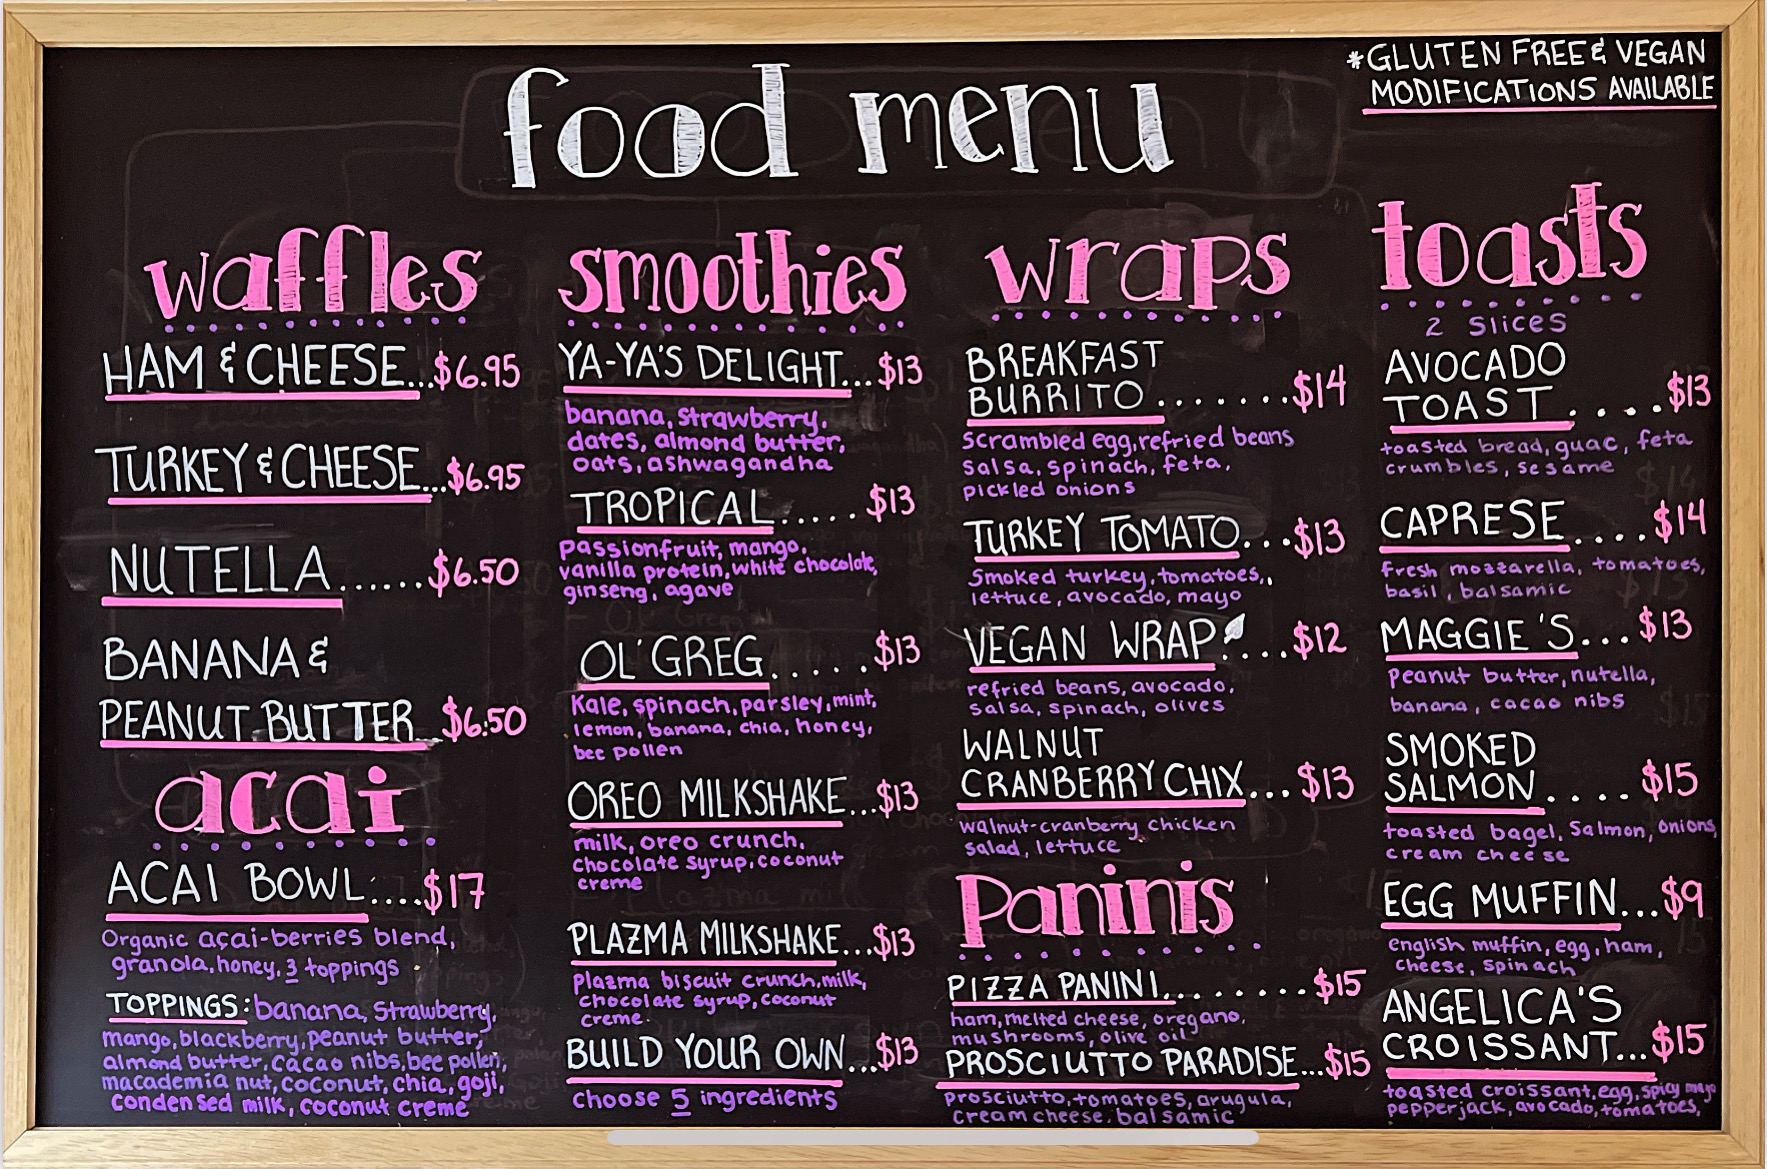 *GLUTEN FREE & VEGAN
MODIFICATIONS AVAILABLE
food menu
waffles
HAM & CHEESE...$6.95
TURKEY & CHEESE...$6.95
NUTELLA......$6.50
BANANA &
PEANUT BUTTER..$6.50
acai
ACAI BOWL....$17
Organic açai-berries blend,
granola, honey, 3 toppings
TOPPINGS: banana, Strawberry,
mango, blackberry, peanut butter,
almond butter, cacao nibs, bee pollen,
macademia nut, coconut, chia, goji,
condensed milk, coconut creme
smoothies
YA-YA'S DELIGHT...$13
banana, strawberry,
dates, almond butter,
oats, ashwagandha
TROPICAL.....$13
passionfruit, mango,
vanilla protein, white chocolate,
ginseng, agave
OL' GREG.....$13
Kale, spinach, parsley, mint,
lemon, banana, chia, honey,
bee pollen
OREO MILKSHAKE...$13
milk, oreo crunch,
chocolate syrup, coconut
creme
PLAZMA MILKSHAKE...$13
plazma biscuit crunch, milk,
chocolate syrup, coconut
creme
BUILD YOUR OWN...$13
choose 5 ingredients
wraps
BREAKFAST
BURRITO.......$14
scrambled egg, refried beans
salsa, spinach, feta,
pickled onions
TURKEY TOMATO...$13
Smoked turkey, tomatoes,
lettuce, avocado, mayo
VEGAN WRAP....$12
refried beans, avocado,
salsa, spinach, olives
WALNUT
CRANBERRY CHIX...$13
walnut-cranberry chicken
salad, lettuce
Paninis
PIZZA PANINI........$15
ham, melted cheese, oregano,
mushrooms, olive oil
PROSCIUTTO PARADISE...$15
prosciutto, tomatoes, arugula,
cream cheese, balsamic
toasts
2 slices
AVOCADO
TOAST.....$13
toasted bread, guac, feta
crumbles, sesame
CAPRESE....$14
fresh mozzarella, tomatoes,
basil, balsamic
MAGGIE'S...$13
peanut butter, nutella,
banana, cacao nibs
SMOKED
SALMON....$15
toasted bagel, Salmon, onions,
cream cheese
EGG MUFFIN...$9
english muffin, egg, ham,
cheese, spinach
ANGELICA'S
CROISSANT...$15
toasted croissant, egg, spicy mayo
pepperjack, avocado, tomatoes,